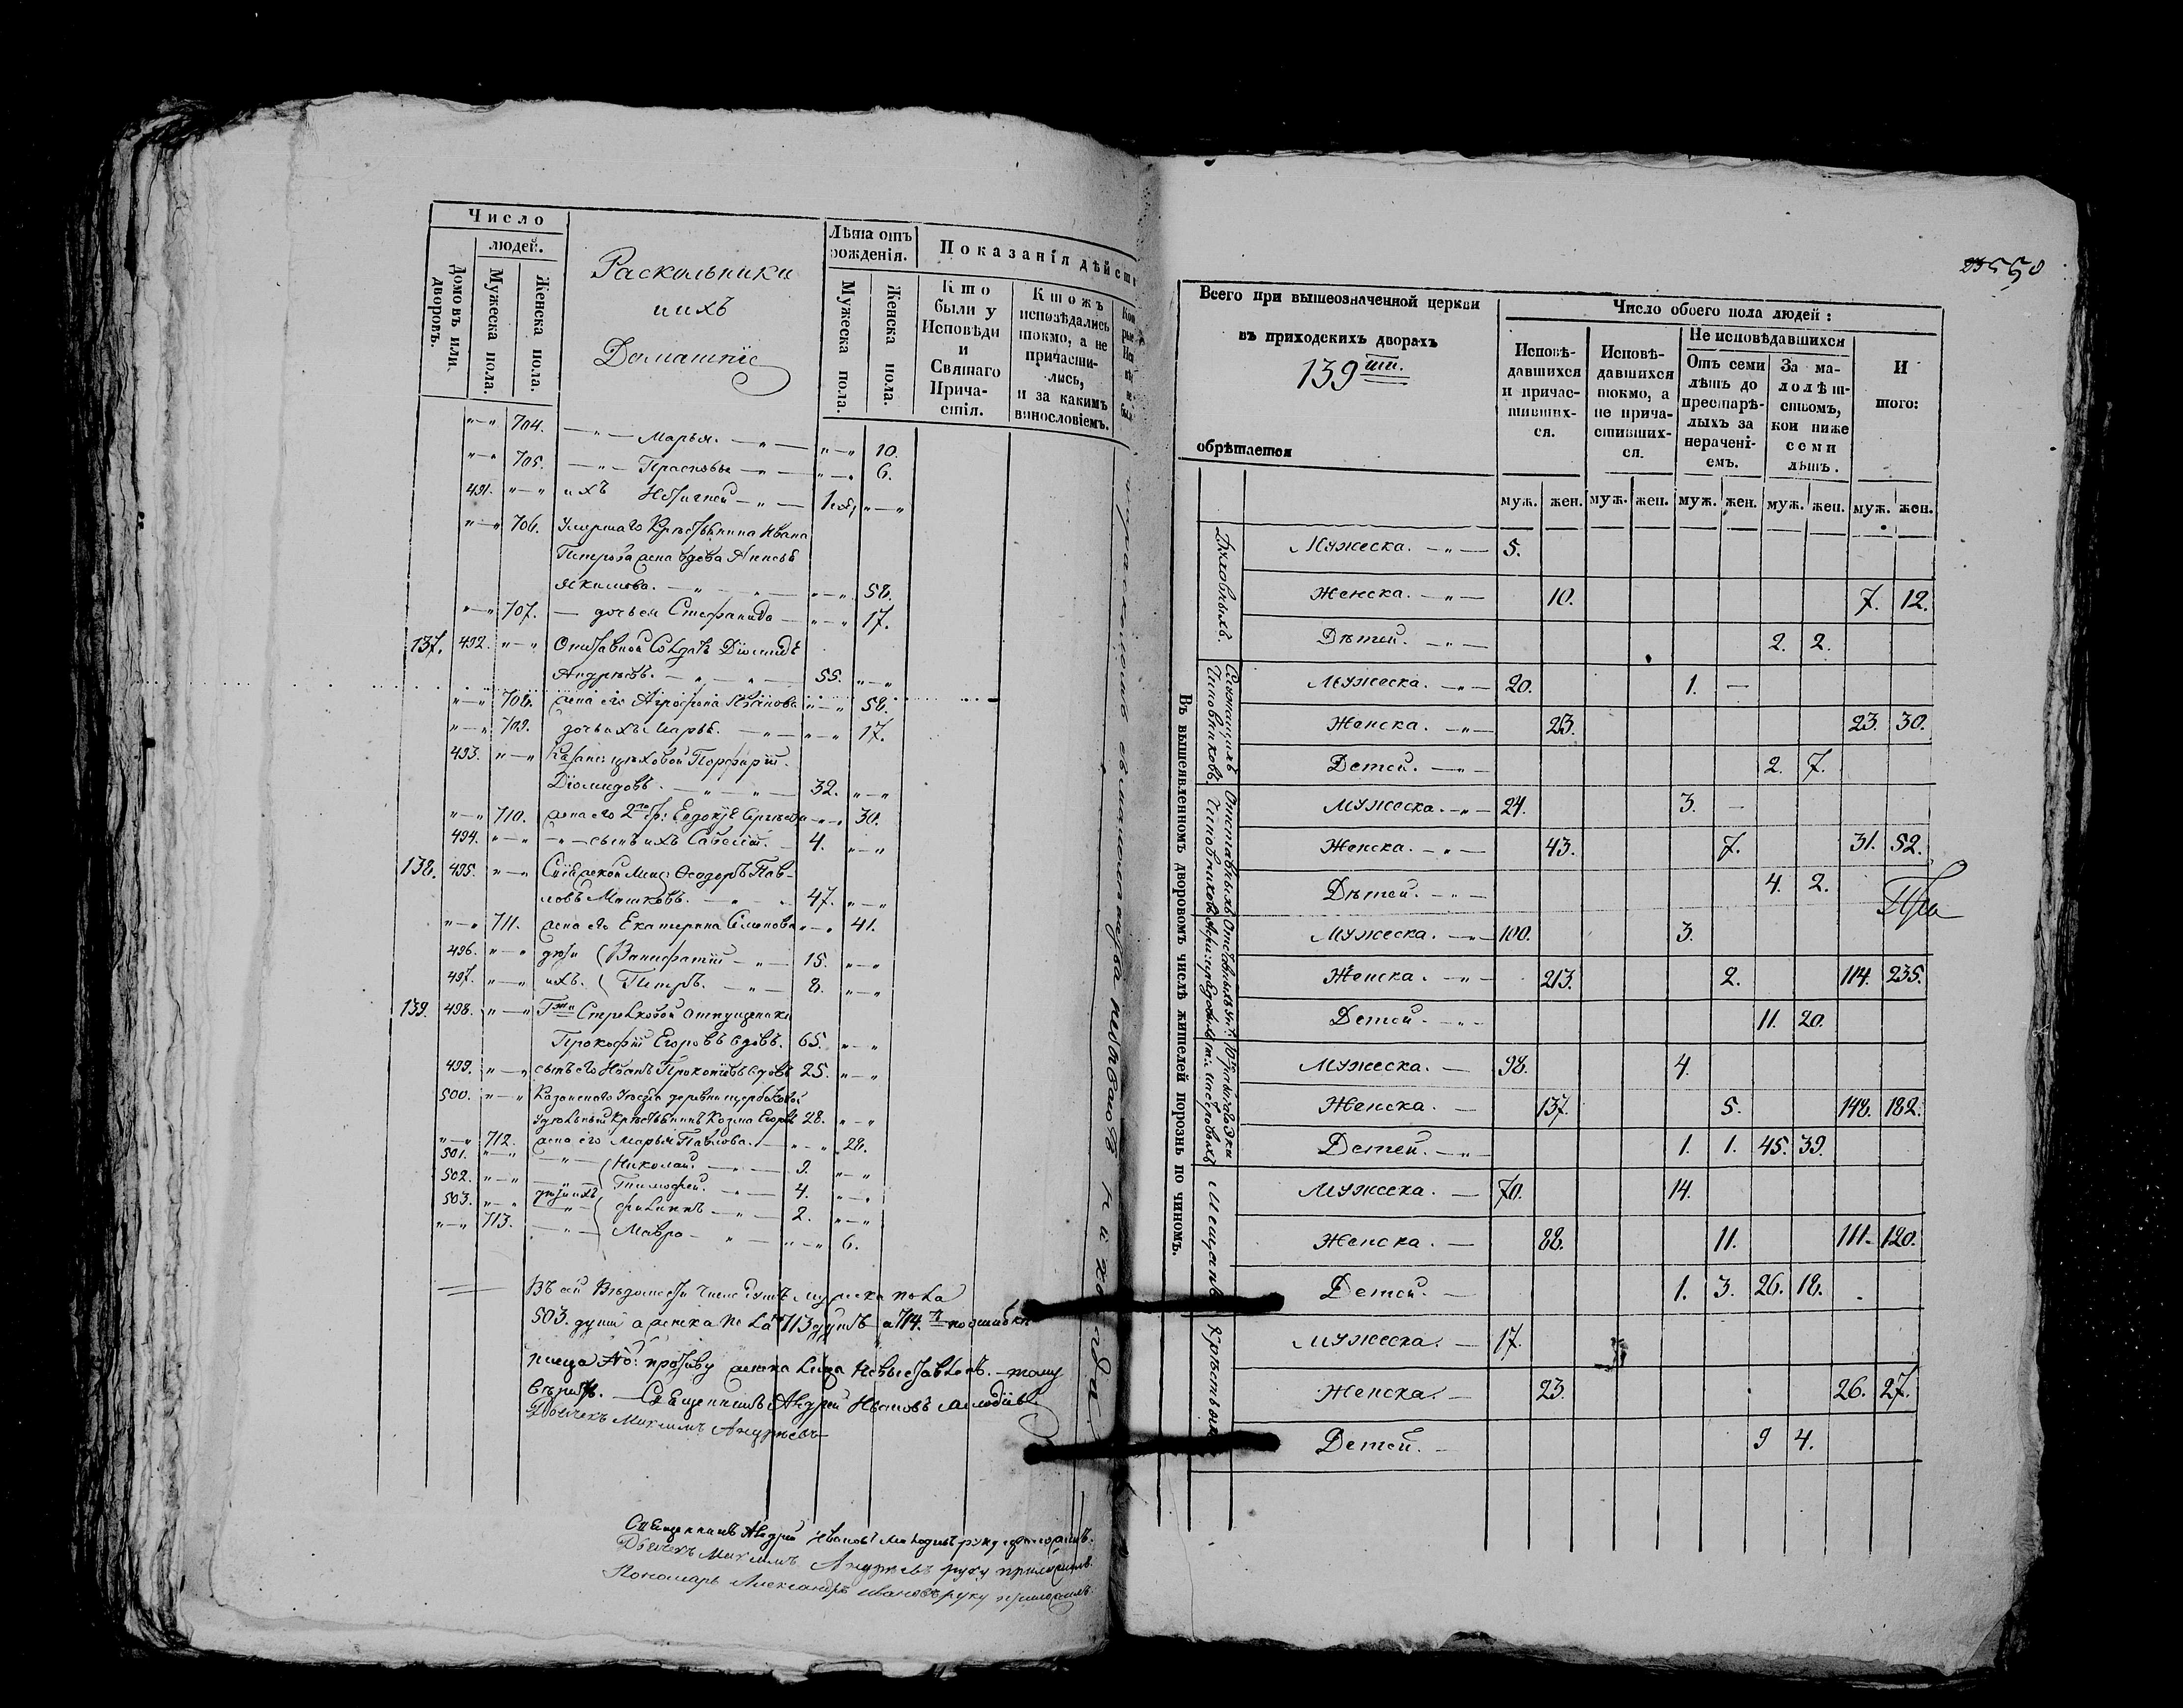 Число
людей.
Домовъ или дворовъ.
Мужеска пола.
Женска пола.
Раскольники
ихъ
Домашніе
Лѣта отъ рожденія.
Мужеска пола.
Женска пола.
Показанія дѣйств
Кто были у Исповѣди и Святаго Причастія.
Ктожъ исповѣдались токмо, а не причастились, и за какимъ винословіемъ.
„—„ 704. —„— Марья. —„— „—„ 10.
„—„ 705. —„— Прасковья —„— „—„ 6.
491. „—„ ихъ —„— „—„
„—„ 706. Умершаго Крестьянина Ивана
Петрова жена вдова
Якимова. —„— „—„ 58.
„—„ 707. — дочь ея Степанида — „—„ 17.
137. 492. „—„ Отставной Солдатъ Діомидъ
Андреевъ. —„—„— 55. „—„
„—„ 708. жена его Агрофена „—„ 58.
„—„ 709. дочь ихъ Марья. —„— „—„ 17.
493. „—„ цеховой Порфирій
Діомидовъ. —„—„— 32. „—„
„—„ 710. жена его 2го бр: Евдокія Сергеева „—„ 30.
494. „—„ —„— сынъ ихъ 4. „—„
138. 495. „—„ Мещ: Ѳеодоръ Пав-
ловъ Машковъ. —„— 47. „—„
„—„ 711. жена его Екатерина „—„ 41.
496. „—„ дѣти Ванифатій —„— 15. „—„
497. „—„ ихъ. Петръ. —„— 8. „—„
139. 498. „—„ Гжи
Прокофій Егоровъ вдовъ. 65. „—„
499. „—„ сынъ его Иванъ Прокопіевъ вдовъ 25. „—„
500. „—„ Казанскаго Уезда деревни
Удельный Крестьянинъ Козма Егоровъ 28. „—„
„—„ 712. жена его Марья Павлова. „—„ 28.
501. „—„ —„— Николай. —„— 9. „—„
502. „—„ дѣти ихъ Тимофей. —„— 4. „—„
503. „—„ —„— Филиппъ —„— 2. „—„
„—„ 713. —„— Мавра — „ — „—„ 6.
Въ сей Ведомости число душъ мужска пола
503. души а женска пола 713 душъ а 714.я по ошибке
противу женска лица —тому
верить. — Священникъ Андрей Ивановъ
Дьячекъ Максимъ Андреевъ
Священникъ Андрей Ивановъ руку приложилъ.
Дьячекъ Максимъ Андреевъ руку приложилъ.
Пономарь Александръ Ивановъ руку приложилъ.
550
Всего при вышеозначенной церкви
въ приходскихъ дворахъ
139ти.
обрѣтается
Число обоего пола людей :
Исповѣдавшихся и причастившихся.
Исповѣдавшихся токмо, а не причастившихся.
Не исповѣдавшихся
Отъ семи лѣтъ до престарѣлыхъ за нераченіемъ.
За малолѣтствомъ, кои ниже семи лѣтъ.
Итого:
муж. жен. муж. жен. муж. жен. муж. жен. муж. жен.
Въ вышеявленномъ дворовомъ числѣ жителей порознь по чиномъ.
Духовныхъ.
Мужеска. —„— 5.
Женска. —„— 10. 7. 12.
Дѣтей. —„— 2. 2.
Служащихъ Чиновниковъ
Мужеска. —„— 20. 1. —
Женска. —„— 23. 23. 30.
Детей. —„— 2. 7.
Отставныхъ Чиновниковъ
Мужеска. —„— 24. 3. —
Женска. —„— 43. 7. 31. 52.
Дѣтей. —„— 4. 2.
Мужеска. —„— 100. 3.
Женска. —„— 213. 2. 114. 235.
Детей. —„— 11. 20.
Мужеска. — 98. 4.
Женска. — 137. 5. 148. 182.
Детей. —„— 1. 1. 45. 39.
Мещанъ
Мужеска. — 70. 14.
Женска. — 88. 11. 111. 120.
Детей. — 1. 3. 26. 18.
Крестьянъ
Мужеска. — 17.
Женска. — 23. 26. 27.
Детей. — 9 4.